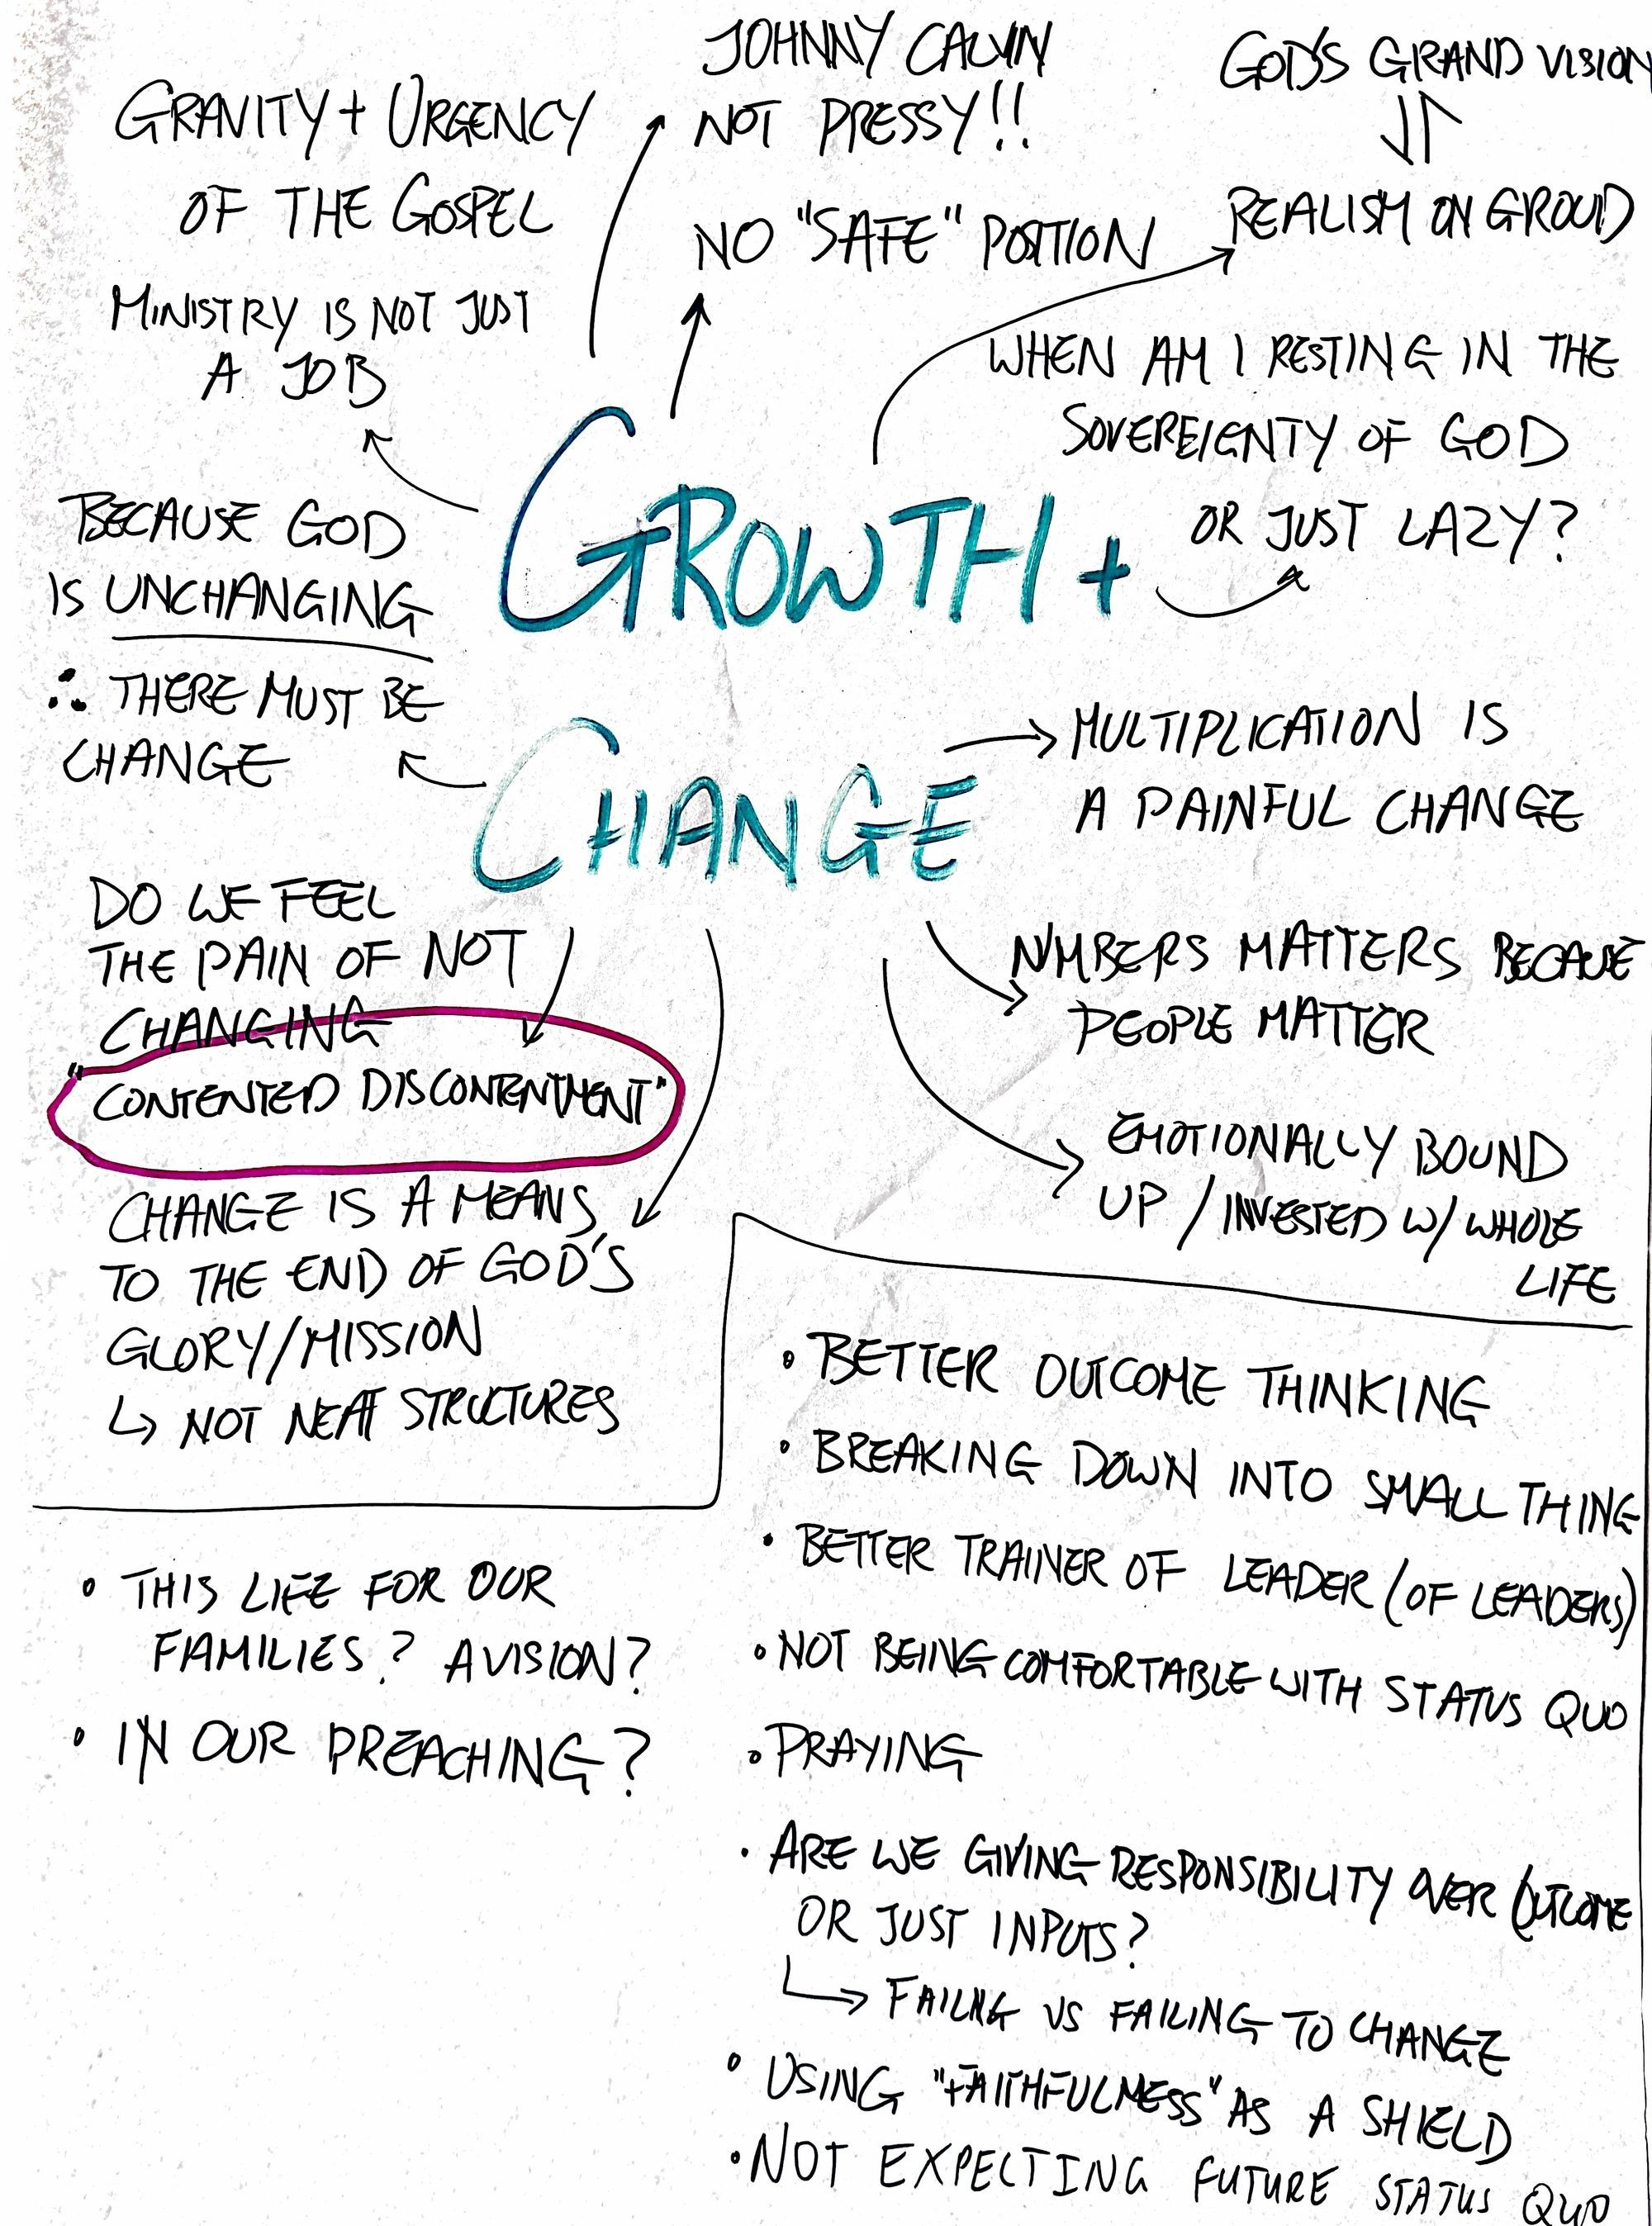 JOHNNY CALVIN
NOT PRESSY!!
GOD'S GRAND VISION
REALISM ON GROUD
GRAVITY + URGENCY
OF THE GOSPEL
NO "SAFE" POSITION
MINISTRY IS NOT JUST
A JOB
WHEN AM I RESTING IN THE
SOVEREIGNTY OF GOD
OR JUST LAZY?
GROWTH +
CHANGE
BECAUSE GOD
IS UNCHANGING
∴ THERE MUST BE
CHANGE
MULTIPLICATION IS
A PAINFUL CHANGE
DO WE FEEL
THE PAIN OF NOT
CHANGING
"CONTENTED DISCONTENTMENT"
NUMBERS MATTERS BECAUSE
PEOPLE MATTER
EMOTIONALLY BOUND
UP / INVESTED W/ WHOLE
LIFE
CHANGE IS A MEANS
TO THE END OF GOD'S
GLORY/MISSION
↳ NOT NEAT STRUCTURES
• THIS LIFE FOR OUR
FAMILIES? A VISION?
• IN OUR PREACHING?
• BETTER OUTCOME THINKING
• BREAKING DOWN INTO SMALL THING
• BETTER TRAINER OF LEADER (OF LEADERS)
• NOT BEING COMFORTABLE WITH STATUS QUO
• PRAYING
• ARE WE GIVING RESPONSIBILITY OVER OUTCOME
OR JUST INPUTS?
↳ FAILNG VS FAILING TO CHANGE
• USING "FAITHFULNESS" AS A SHIELD
• NOT EXPECTING FUTURE STATUS QUO